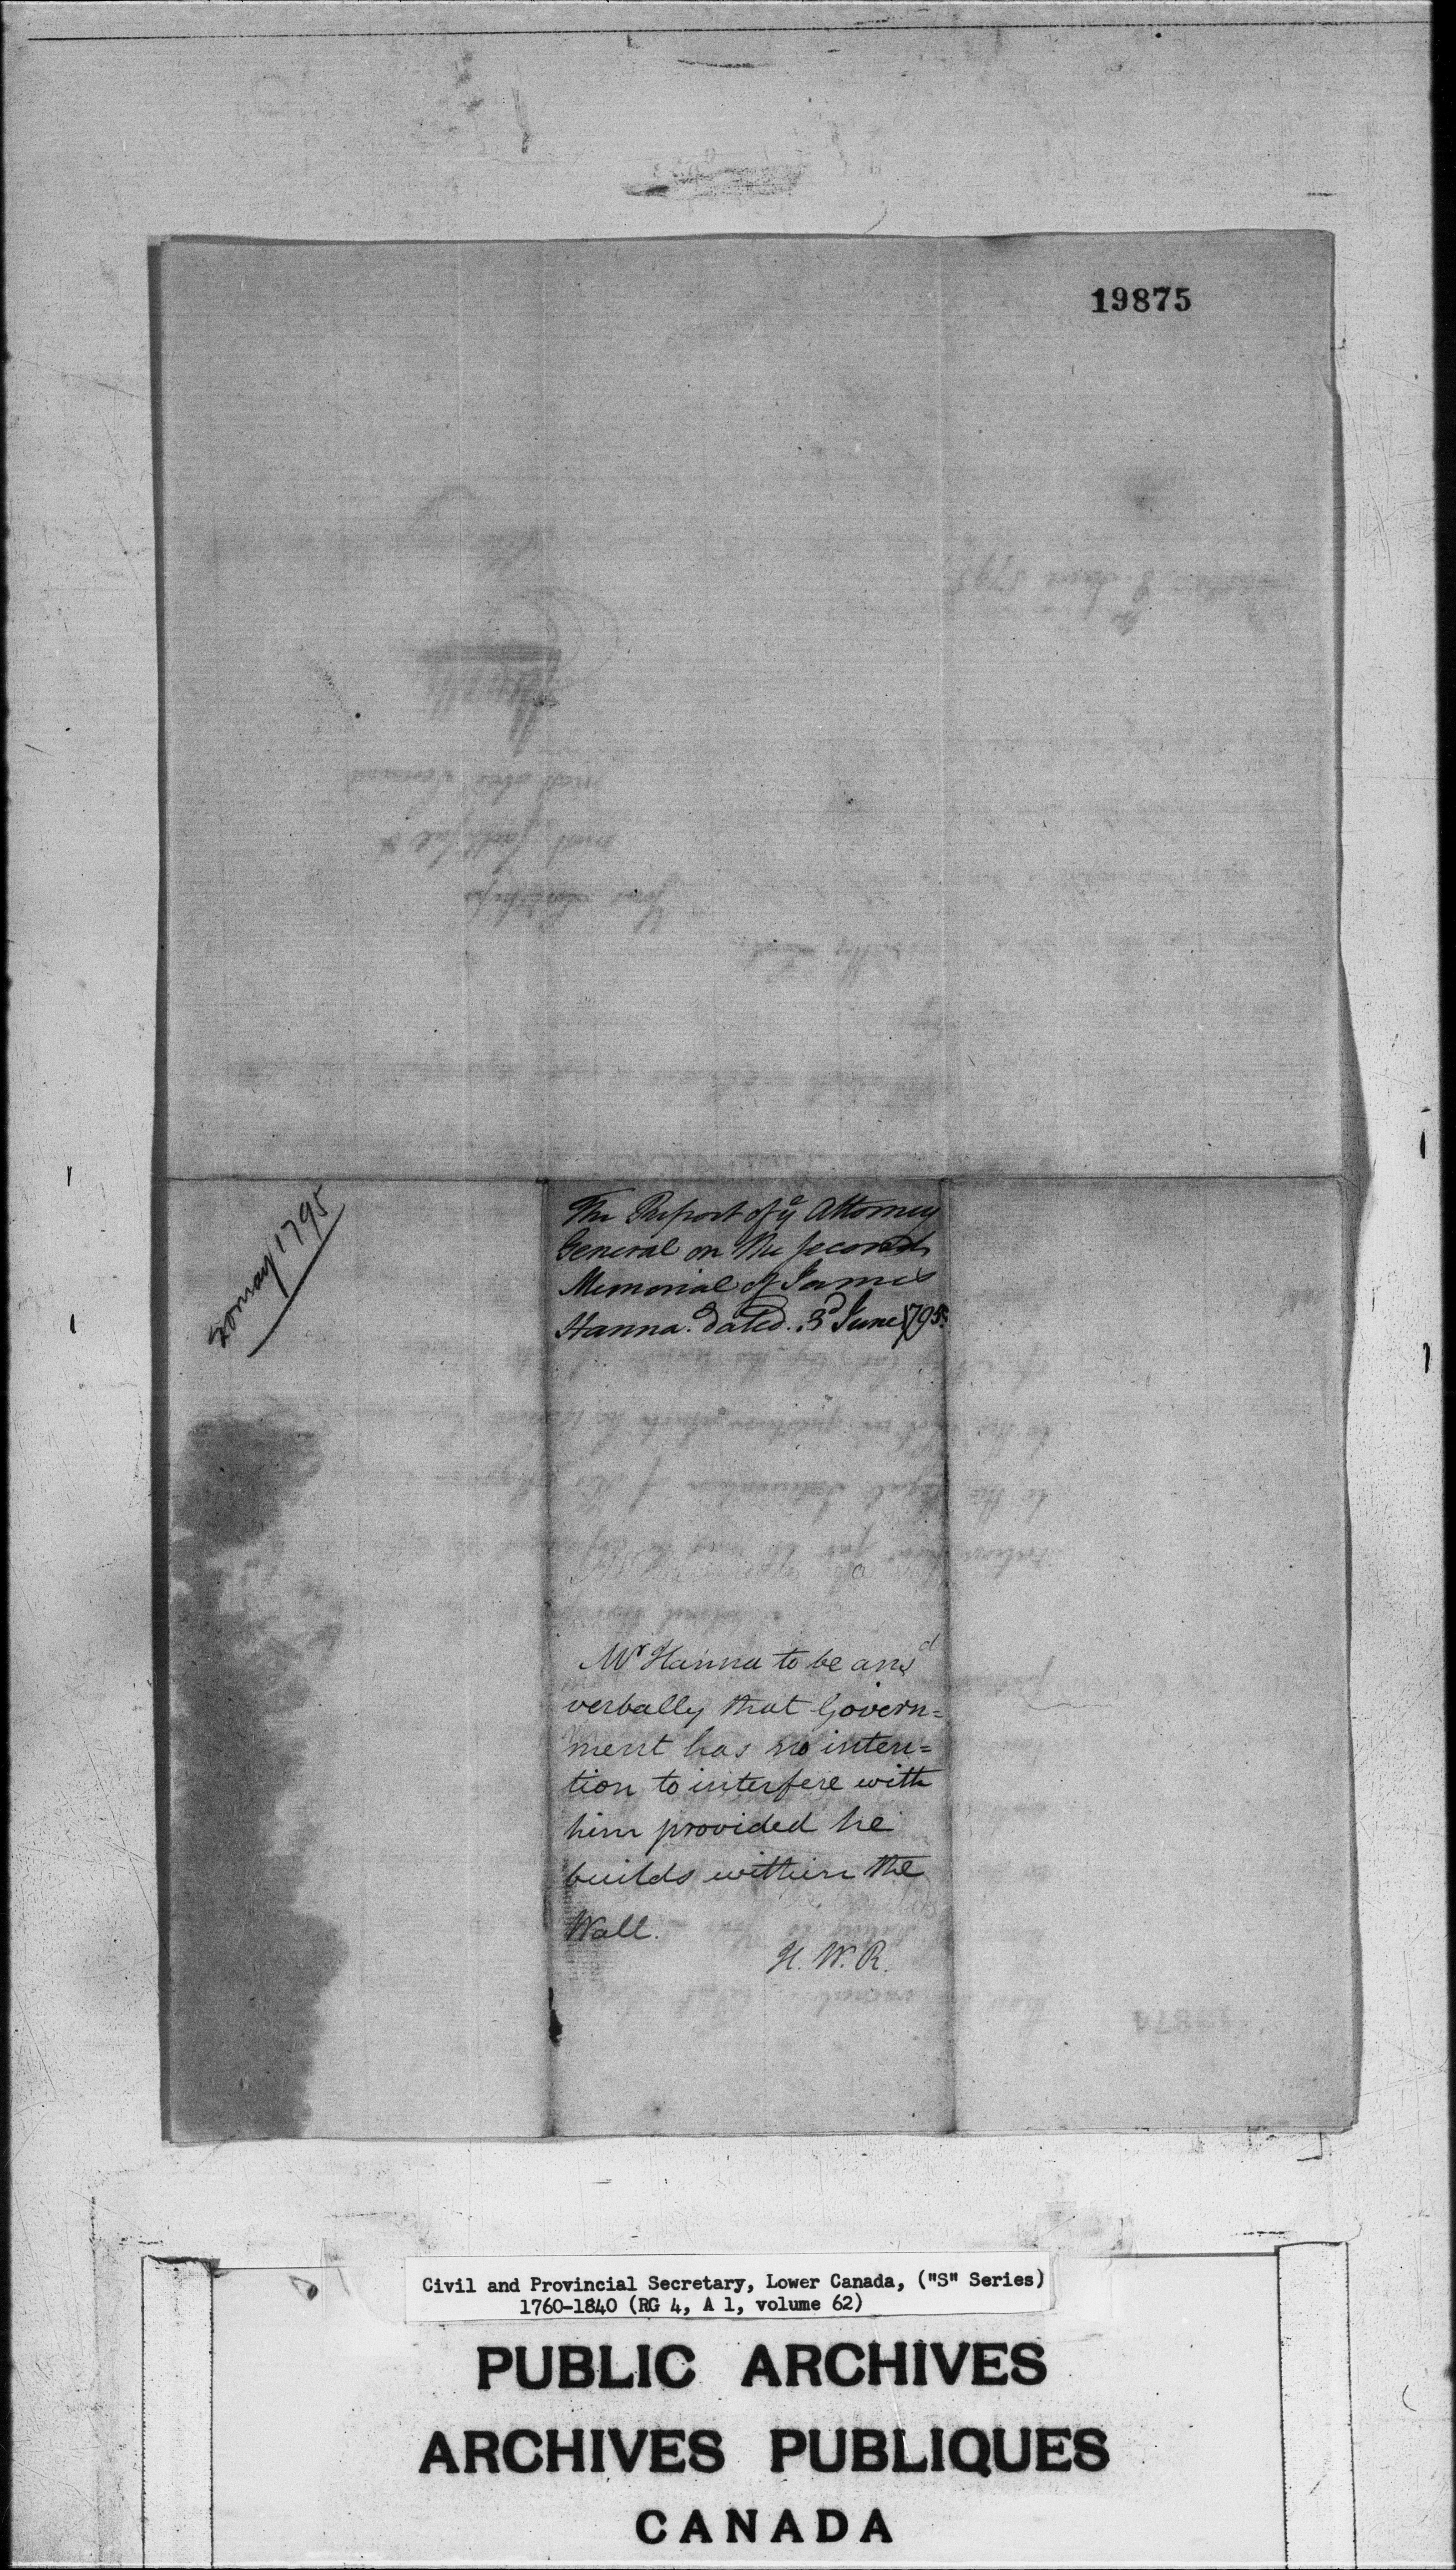 19875
20 may 1795
The Report of ye Attorney
General on the Second
Memorial of James
Hanna. dated. 3d June 1795.
Mr Hanna to be ansd
verbally that Govern=
ment has no inten=
tion to interfere with
him provided he
builds within the
Wall.
H. W. R.
Civil and Provincial Secretary, Lower Canada, ("S" Series)
1760-1840 (RG 4, A 1, volume 62)
PUBLIC ARCHIVES
ARCHIVES PUBLIQUES
CANADA